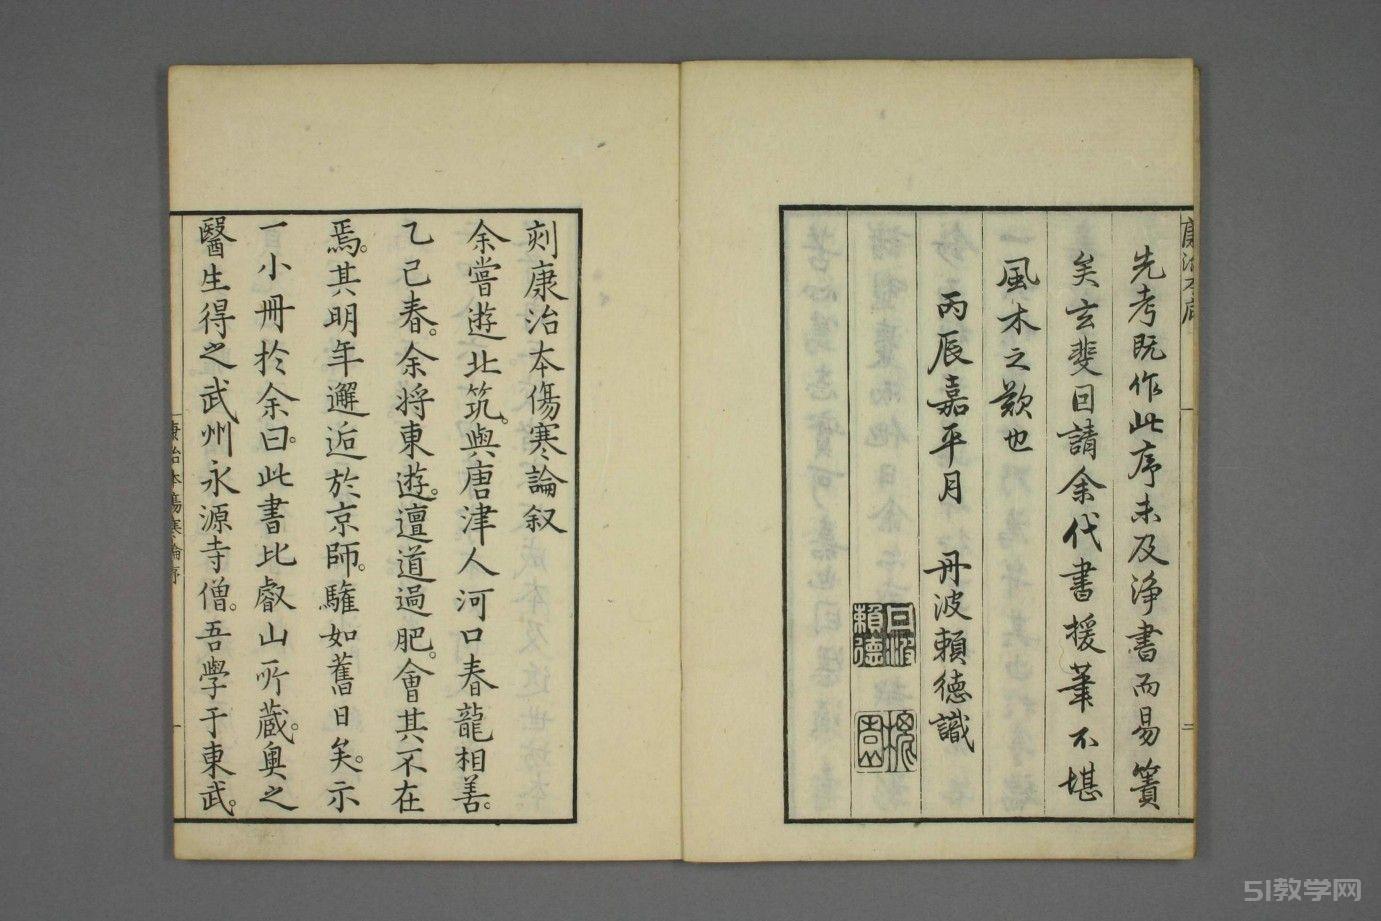 先考既作此序未及淨書而易簀
矣玄斐因請余代書援筆不堪
風木之歎也
丙辰嘉平月 丹波賴德識
丹波
賴德
刻康治本傷寒論叙
余嘗遊北筑。與唐津人河口春龍相善。
乙己春。余将東遊。邅道過肥。會其不在
焉。其明年邂逅於京師。驩如舊日矣。示
一小冊於余曰。此書比叡山所蔵。奥之
醫生得之武州永源寺僧。吾學于東武。
康治本傷寒論序
一
51教学网